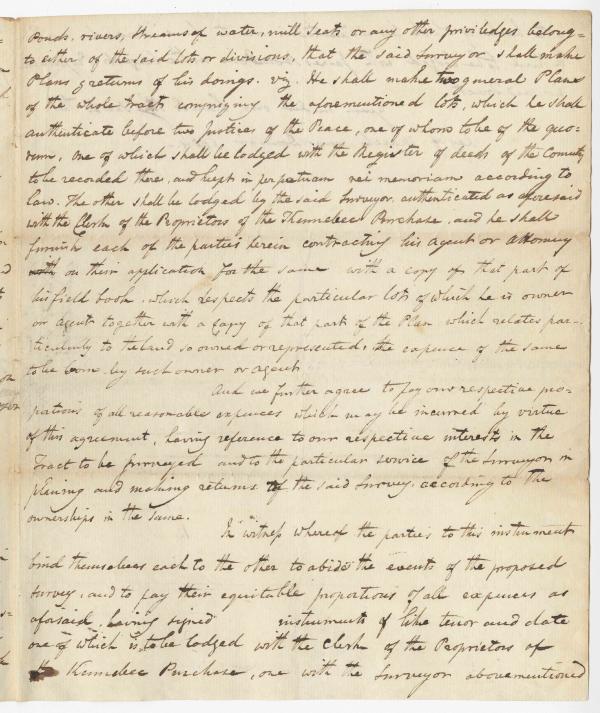 Ponds, rivers, streams of water, mill seats or any other priviledges belong=
to either of the said lots or divisions, that the said Surveyor shall make
Plans & returns of his doings. viz. He shall make two general Plans
of the whole Tract comprizing the aforementioned lots, which he shall
authenticate before two justices of the Peace, one of whom to be of the quo=
rum, one of which shall be lodged with the Register of deeds of the County
to be recorded there, and kept in perpetuam rei memoriam according to
law. The other shall be lodged by the said Surveyor, authenticated as aforesaid
with the Clerk of the Proprietors of the Kennebec Purchase, and he shall
furnish each of the parties herein contracting his agent or attorney
on their application for the same with a copy of that part of
his field book, which respects the particular lots of which he is owner
or agent together with a copy of that part of the Plan which relates par=
ticularly to the land so owned or represented, the expence of the same
to be born by such owner or agent
And we further agree to pay our respective pro=
portions of all reasonable expences which may be incurred by virtue
of this agreement, having reference to our respective interests in the
Tract to be surveyed and to the particular service of the Surveyor in
plening and making returns of the said Survey, according to the
ownerships in the same.
In witness whereof the parties to this instrument
bind themselves each to the other to abide the events of the proposed
survey, and to pay their equitable proportions of all expences as
aforsaid, having signed instruments of like tenor and date
one of which is to be lodged with the Clerk of the Proprietors of
the Kennebec Purchase, one with the Surveyor abovementioned